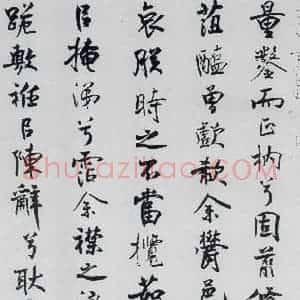 量鑿而正枘兮固前脩
菹醢曾歔欷余鬱邑
哀朕時之不當攬茹
㠯掩涕兮霑余襟之浪
跪敷衽㠯陳辭兮耿